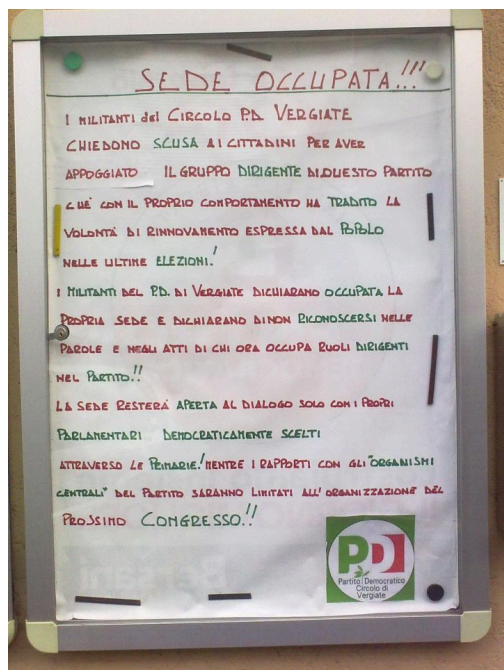 SEDE OCCUPATA...!!!
I MILITANTI del CIRCOLO P.D. VERGIATE
CHIEDONO SCUSA AI CITTADINI PER AVER
APPOGGIATO IL GRUPPO DIRIGENTE DI QUESTO PARTITO
CHE CON IL PROPRIO COMPORTAMENTO HA TRADITO LA
VOLONTÀ DI RINNOVAMENTO ESPRESSA DAL POPOLO
NELLE ULTIME ELEZIONI!
I MILITANTI DEL P.D. DI VERGIATE DICHIARANO OCCUPATA LA
PROPRIA SEDE E DICHIARANO DI NON RICONOSCERSI NELLE
PAROLE E NEGLI ATTI DI CHI ORA OCCUPA RUOLI DIRIGENTI
NEL PARTITO!!
LA SEDE RESTERÀ APERTA AL DIALOGO SOLO CON I PROPRI
PARLAMENTARI DEMOCRATICAMENTE SCELTI
ATTRAVERSO LE PRIMARIE! MENTRE I RAPPORTI CON GLI "ORGANISMI
CENTRALI" DEL PARTITO SARANNO LIMITATI ALL'ORGANIZZAZIONE DEL
PROSSIMO CONGRESSO!!
PD
Partito Democratico
Circolo di
Vergiate